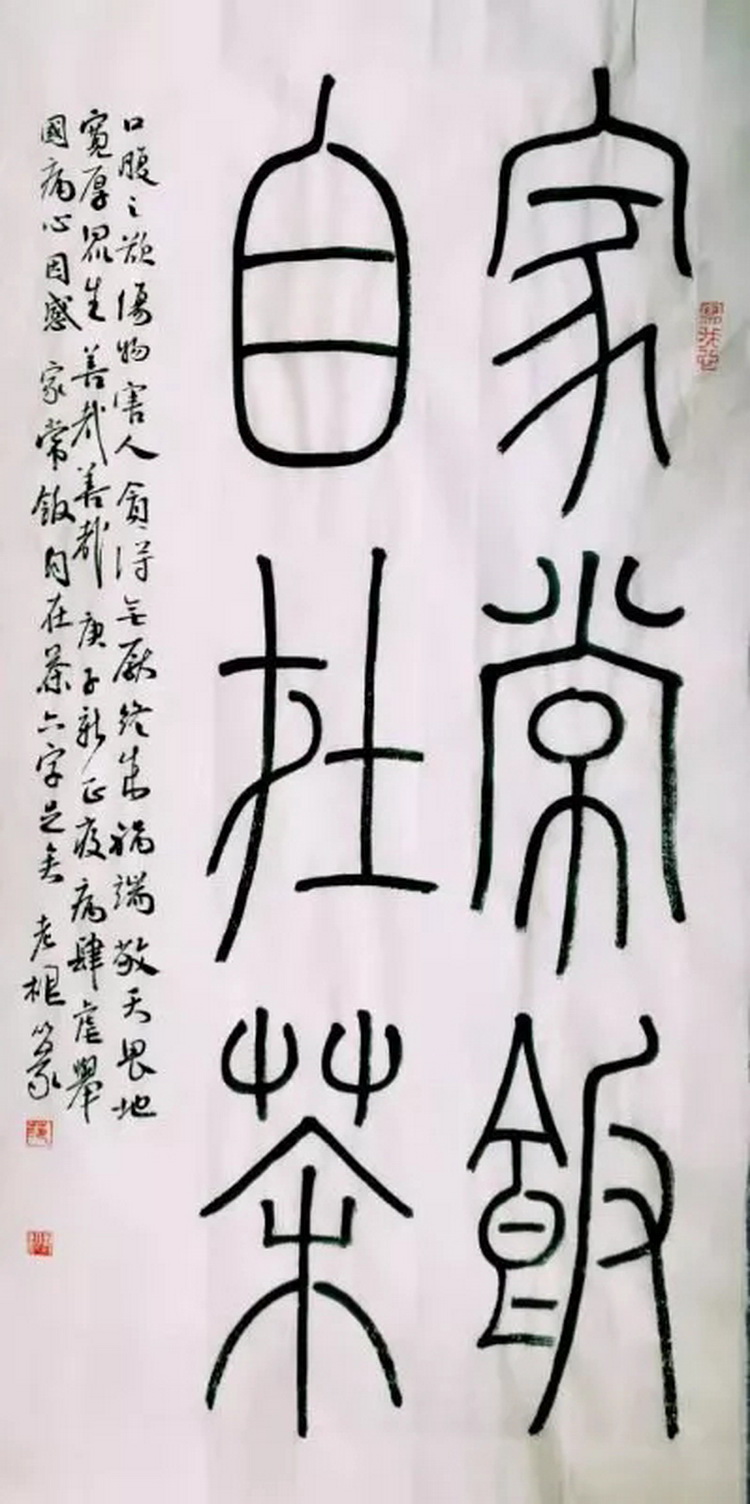 家常飯
自在茶
口腹之欲傷物害人貪得無厭終生禍端敬天畏地
寬厚眾生善哉善哉庚子新正疫病肆虐舉
國病心因感家常飯自在茶六字足矣老根篆